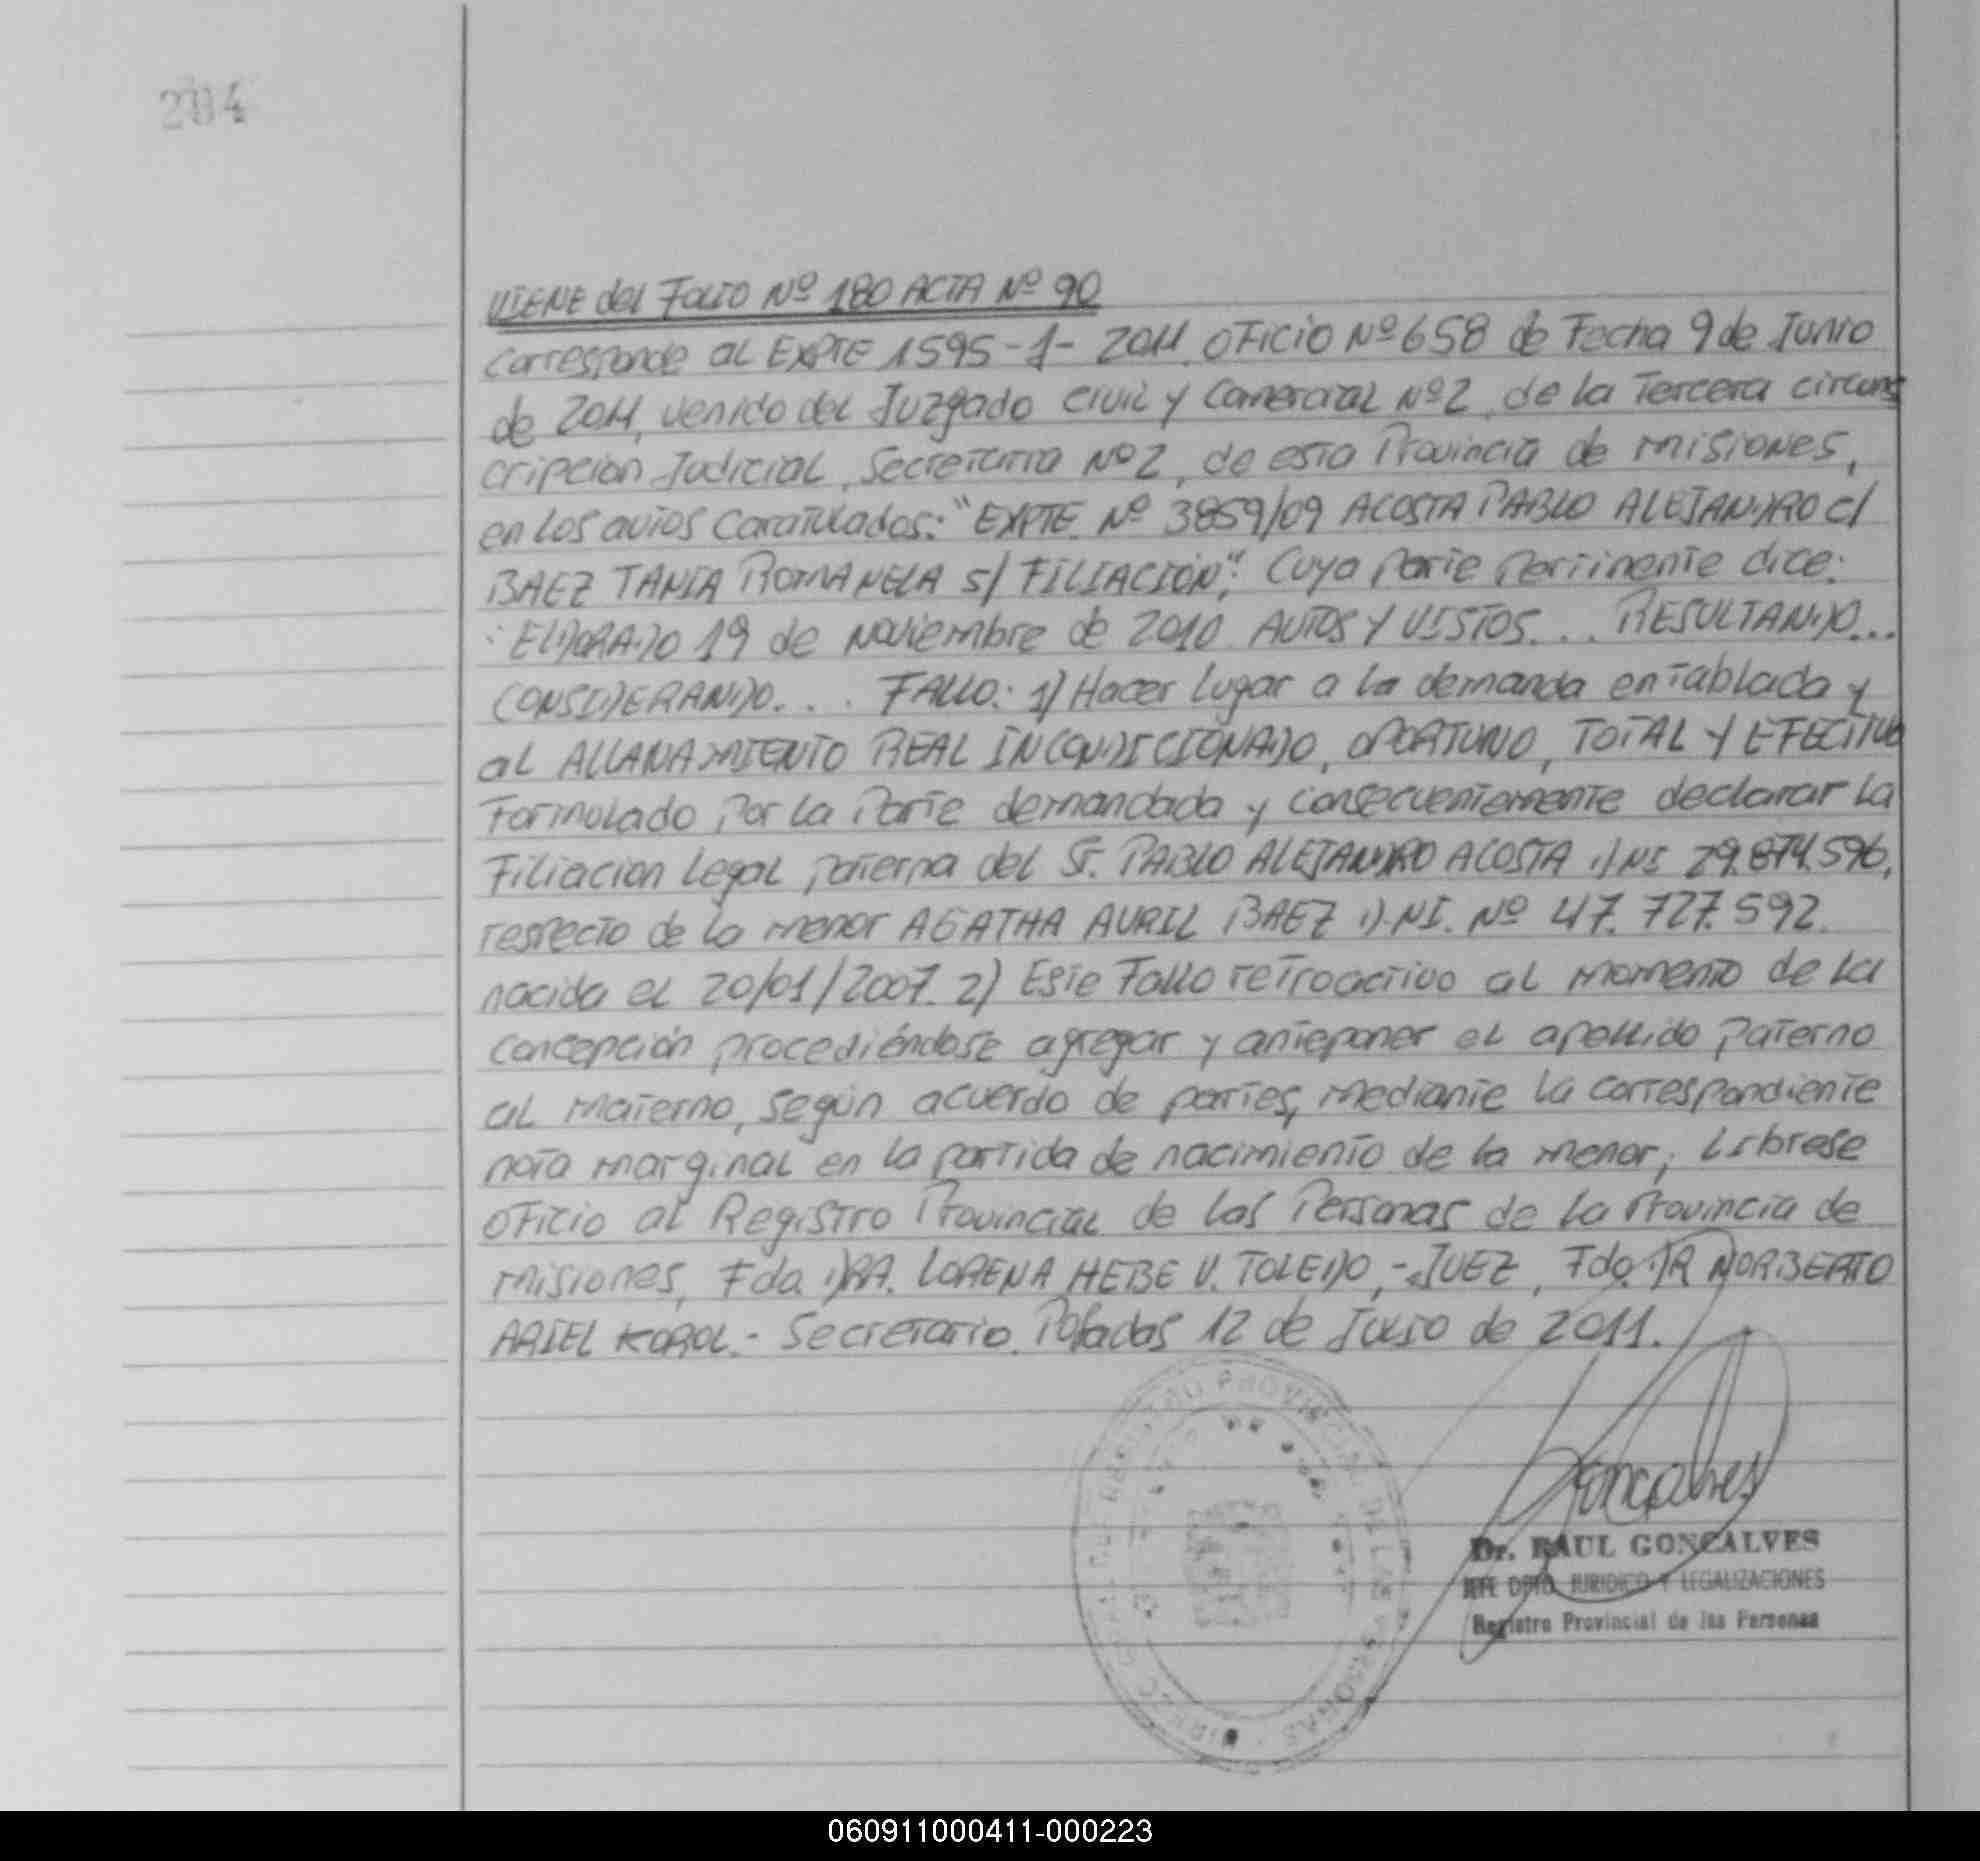 204
VIENE del FOLIO Nº 180 ACTA Nº 90
Corresponde al EXPTE 1595-1-2011. OFICIO Nº 658 de Fecha 9 de Junio
de 2011, venido del Juzgado Civil y Comercial Nº 2, de la Tercera circuns
cripcion Judicial, Secretaria Nº 2, de esta Provincia de misiones,
en los autos caratulados: "EXPTE. Nº 3859/09 ACOSTA PABLO ALEJANDRO C/
BAEZ TANIA ROMANELA S/ FILIACIÓN", Cuya parte pertinente dice:
"ELDORADO 19 de noviembre de 2010. AUTOS Y VISTOS... RESULTANDO...
CONSIDERANDO.... FALLO: 1) Hacer lugar a la demanda entablada y
al ALLANAMIENTO REAL INCONDICIONADO, OPORTUNO, TOTAL Y EFECTIVO
Formulado por la parte demandada y consecuentemente declarar la
Filiacion legal paterna del Sr. PABLO ALEJANDRO ACOSTA DNI 29.874.596,
respecto de la menor AGATHA AVRIL BAEZ D.NI. Nº 47.727.592.
nacida el 20/01/2007. 2) Este Fallo retroactivo al momento de la
concepción procediéndose agregar y anteponer el apellido paterno
al materno, según acuerdo de partes, mediante la correspondiente
nota marginal en la partida de nacimiento de la menor; Librese
oficio al Registro Provincial de las Personas de la Provincia de
misiones, Fdo. DRA. LORENA HEBE V. TOLEDO,-JUEZ, Fdo. DR NORBERTO
ARIEL KOROL.- Secretario. Posadas 12 de Julio de 2011.
Goncalves
Dr. RAUL GONCALVES
JEFE DPTO. JURIDICO Y LEGALIZACIONES
Registro Provincial de las Personas
060911000411-000223